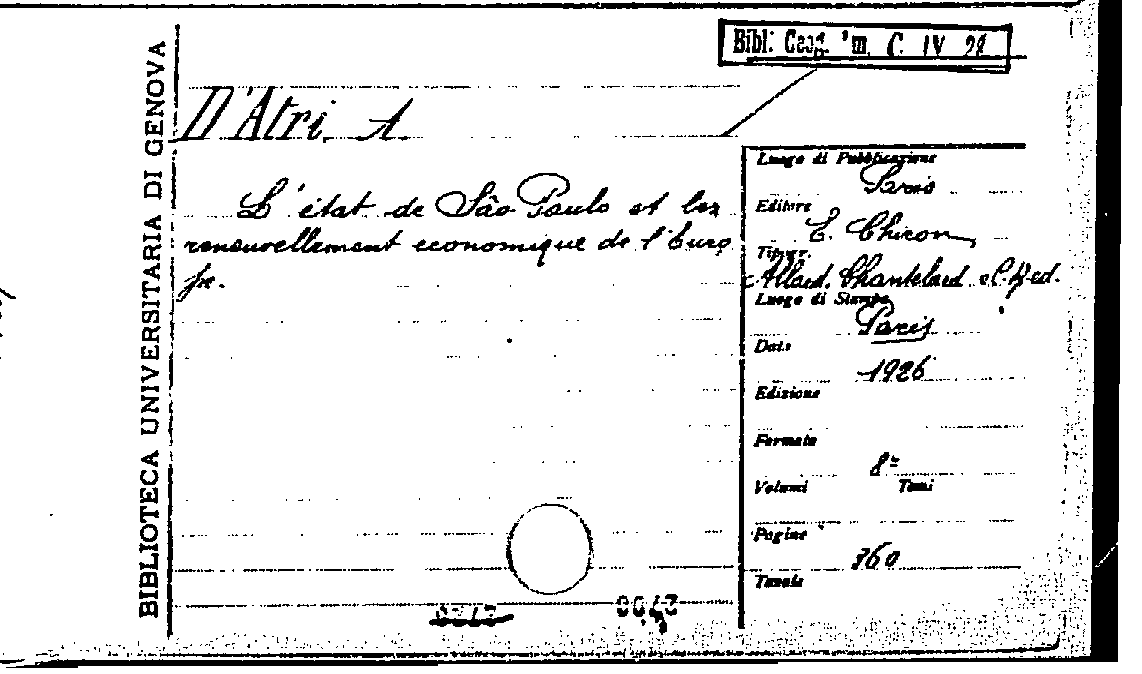 BIBLIOTECA UNIVERSITARIA DI GENOVA
Bibl. Geog. C. IV 28
D'Atri, A.
L'état de São Paulo et les
renouvellement economique de l'Euro
pe.
Luogo di Pubblicazione
Paris
Editore
E. Chiron
Tipogr.
Allard, Chantelard
Luogo di Stampa
Paris
Data
1926
Edizione
Formato
8º
Volumi Tomi
Pagine
360
Tavole